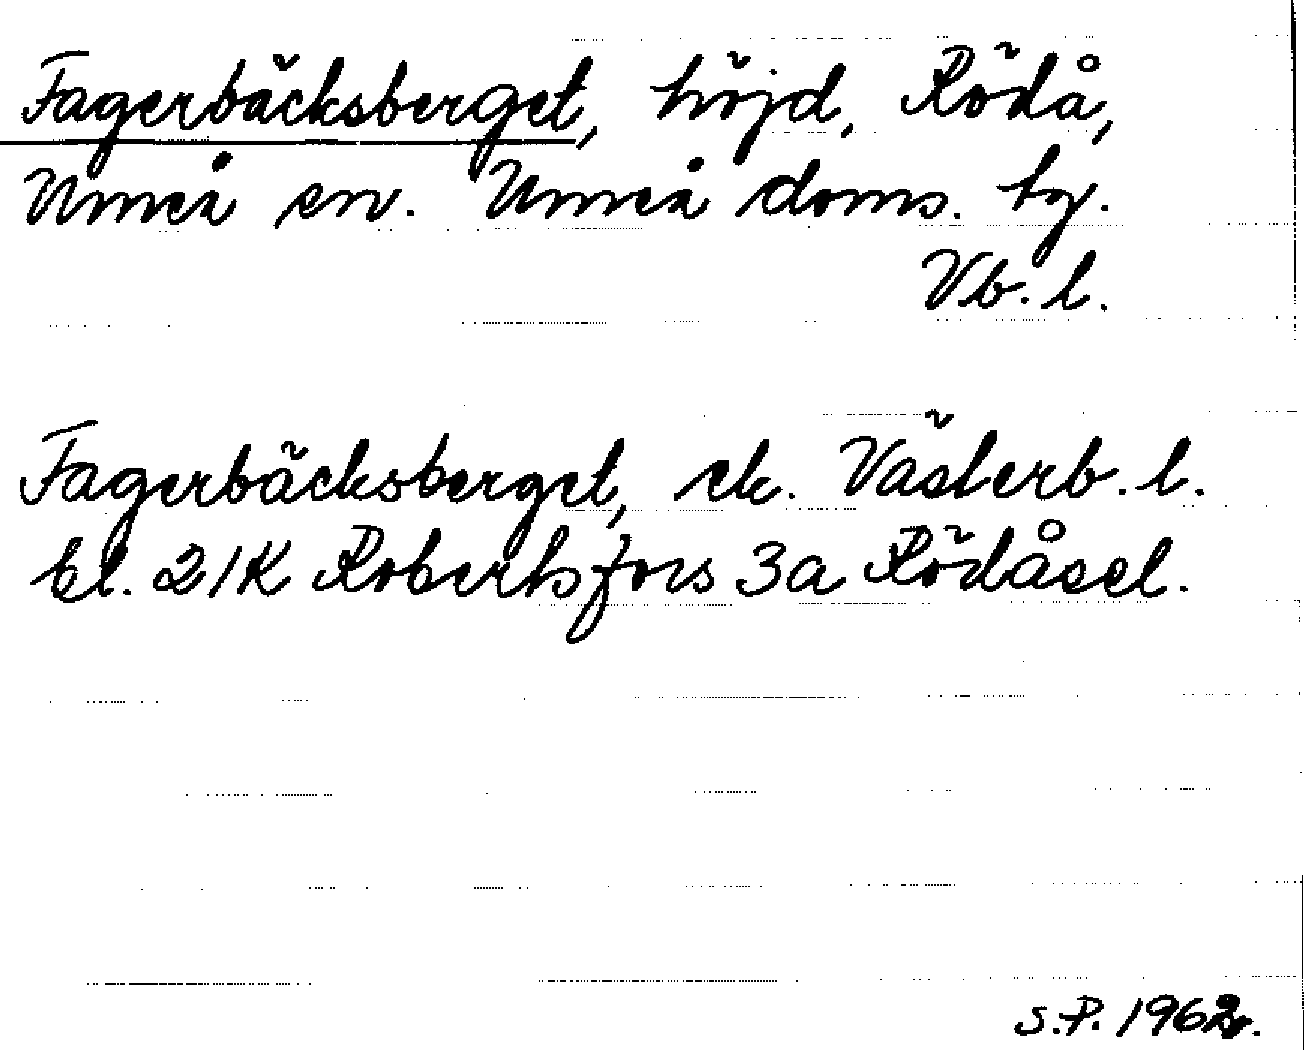 Fagerbäcksberget, höjd, Rödå,
Umeå sn. Umeå doms. tg.
Vb. l.
Fagerbäcksberget, ek. Västerb. l.
bl. 21K Robertsfors 3a Rödåsel.
S.P. 1962.